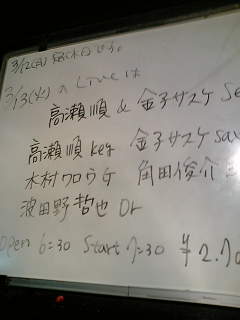 3/12(月)
3/13(火) a Live は
高瀬順 & 金子サスケ Se
高瀬順 key 金子サスケ sa
木村クロウ G 角田俊介
波田野哲也 Dr
Open 6=30 Start 7=30 ¥2.7